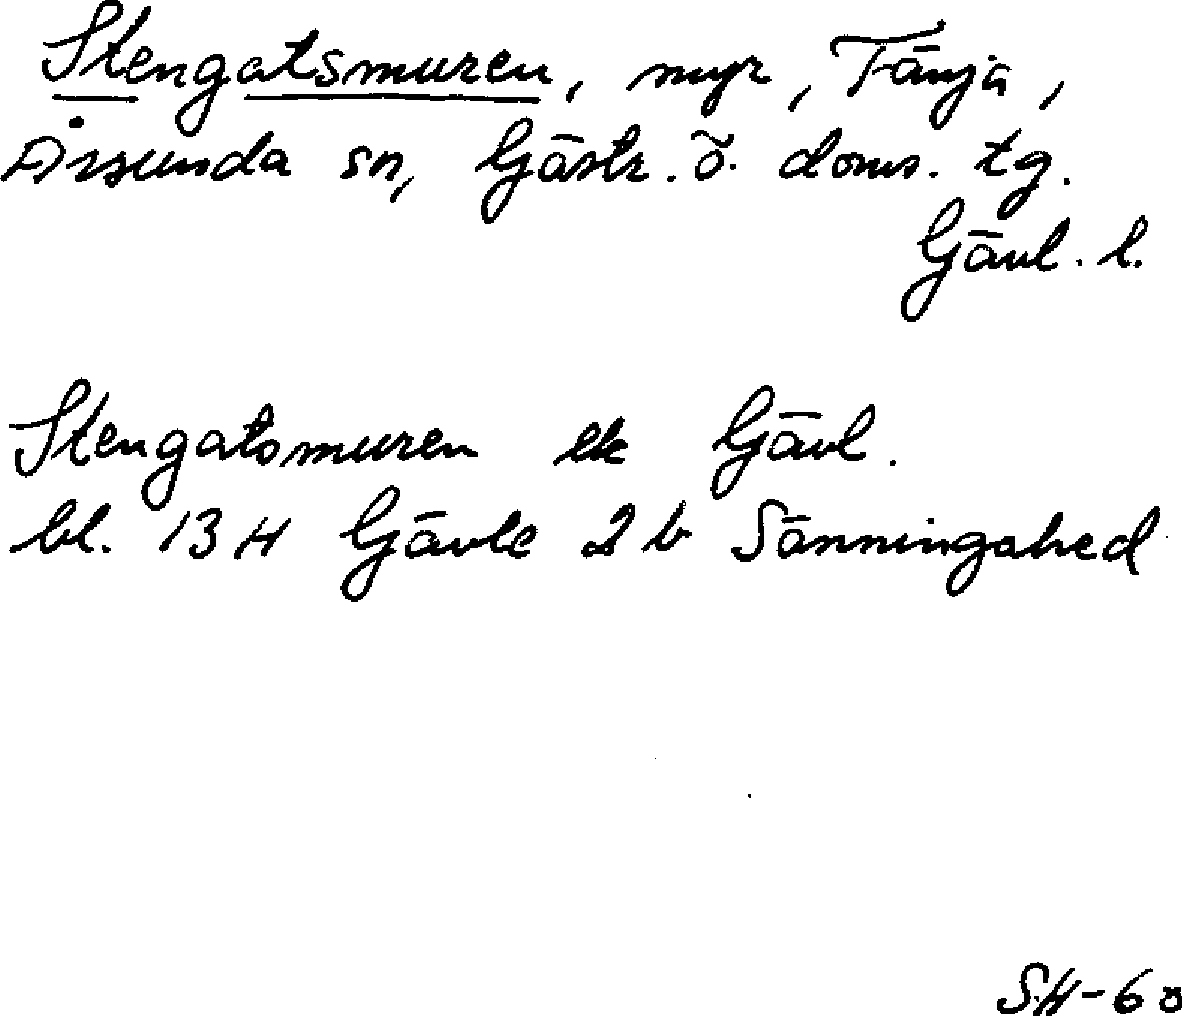 Stengatsmuren, myr, Fänja,
Årsunda sn, Gästr. ö. doms. tg.
Gävl. l.
Stengatsmuren ek Gävl.
bl. 13 H Gävle 2 b Sänningahed
S.H-60